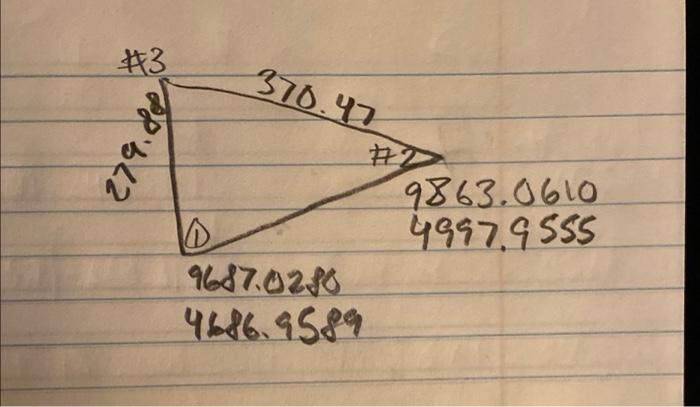 #3
370.47
279.88
#2
9863.0610
4997.9555
1
9687.0280
4686.9589